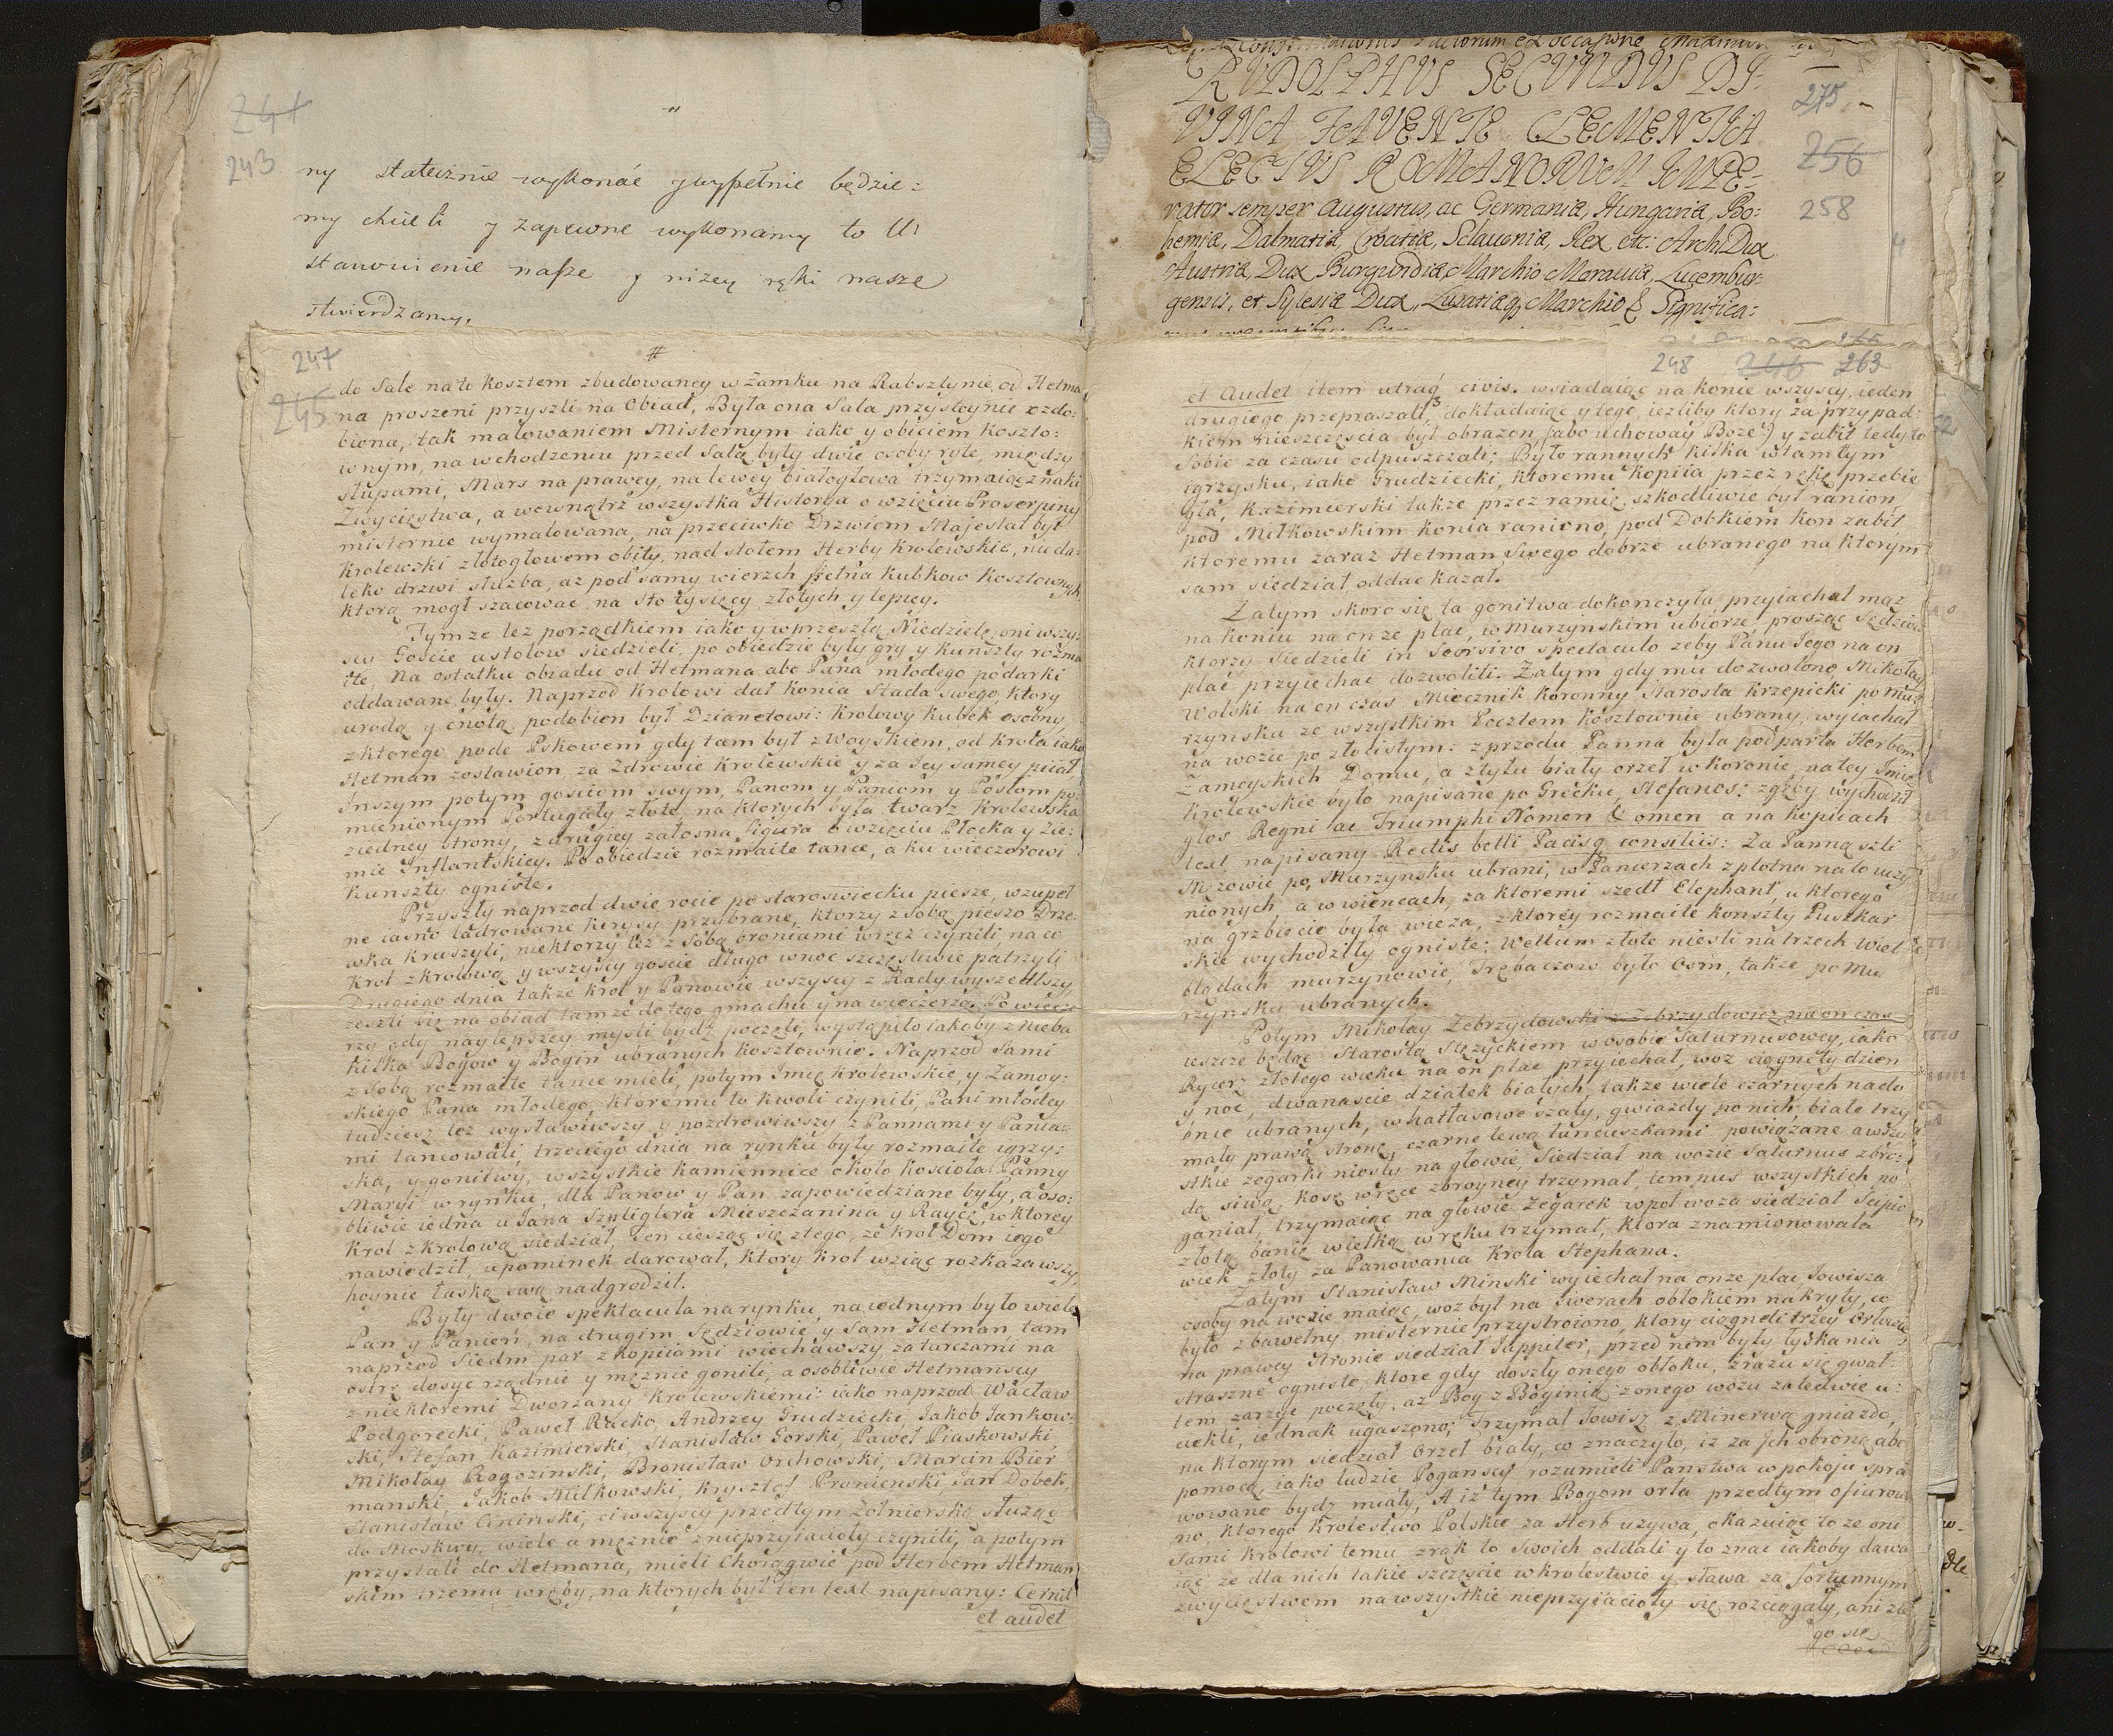 247
243
ny statecznie wykonać y wypełnie będzie:
my chcieli y zapewne wykonamy to U:
stanowienie nasze y niżey ręki nasze
stwierdzamy.
247
245
do Sale na to kosztem zbudowaney w Zamku na Rabsztynie, od Hetma
na proszeni przyszli na Obiad, Była ona Sala przystoynie ozdo:
biona, tak malowaniem Misternym iako y obiciem koszto:
wnym, na wchodzeniu przed Salą były dwie osoby ryte, między
słupami, Mars na prawey, na lewey białogłowa trzymaiąc znaki
Zwycięstwa, a wewnątrz wszystka Historya o wzięciu Proserpiny
misternie wymalowana, na przeciwko Drzwiom Majestat był
Krolewski złotogłowem obity, nad stołem Herby Krolewskie, nieda:
leko drzwi służba, aż pod samy wierzch pełna kubkow kosztownych
ktorą mogł szacować na sto tysięcy złotych y lepiey.
Tymże też porządkiem iako y w przeszłą Niedzielę oni wszy:
scy Goscie u stołow siedzieli, po obiedzie były gry y kunszty rozma
ite, Na ostatku obiadu od Hetmana abo Pana młodego podarki
oddawane były. Naprzod Krolowi dał konia Stada swego, ktory
urodą y cnotą podobien był Dzianetowi: krolowy kubek osobny,
z ktorego pode Pskowem gdy tam był z Woyskiem, od Krola iako
Hetman zostawion, za Zdrowie Krolewskie y za Jey samey piiał,
Inszym potym gosciom swym, Panom y Paniom y Posłom po:
mienionym Portugały złote, na ktorych była twarz Krolewska
z iedney strony, z drugiey załosna figura o wzięciu Płocka y Zie:
mie Inflantskiey. Po obiedzie rozmaite tance, a ku wieczorowi
kunszty ogniste.
Przyszły naprzod dwie rocie po staroswiecku piesze, w zupeł
ne iasno ladrowane kirysy przybrane, ktorzy z sobą pieszo Drze:
wka kruszyli, niektorzy też z sobą broniami wręcz czynili, na co
Krol z krolową y wszyscy goscie długo w noc szczęsliwie patrzyli
Drugiego dnia także krol y Panowie wszyscy z Rady wyszedłszy,
zeszli się na obiad tamże do tego gmachu y na wieczerzą. Po wiecze
rzy gdy naylepszey mysli bydź poczęli, wystąpiło iakoby z nieba
kilka Bogow y Bogiń ubranych kosztownie. Naprzod sami
z sobą rozmaite tance mieli, potym Imię Krolewskie, y Zamoy:
skiego Pana młodego, ktoremu to kwoli czynili, Pani młodey
tudziesz też wysławiwszy y pozdrowiwszy z Pannami y Pania:
mi tancowali, trzeciego dnia na rynku były rozmaite igrzy:
ska, y gonitwy, wszystkie kamiennice około kosciola Panny
Maryi w rynku, dla Panow y Pan zapowiedziane były, a oso:
bliwie iedna u Jana Szpliglera Mieszczanina y Raycę, w ktorey
Krol z krolową siedział, ten ciesząc się z tego, że krol Dom iego
nawiedził, upominek darował, ktory krol wziąc rozkazawszy,
hoynie łaską swą nadgrodził.
Były dwoie spektacula na rynku, na iednym było wiele
Pan y Panien, na drugim Sędziowie, y sam Hetman, tam
naprzod siedm par z kopiiami wiechawszy za tarczami, na
ostrę dosyc rządnie y mężnie gonili, a osobliwie Hetmanscy
z niektoremi Dworzany Krolewskiemi: iako naprzod Wacław
Podgorecki, Paweł Rucko, Andrzey Grudziecki, Jakob Jankow:
ski, Stefan Kazimierski, Stanisław Gorski, Paweł Piaskowski
Mikołay Rogozinski, Bronisław Orchowski, Marcin Bier
manski, Jakob Miłkowski, Krysztof Pronienski, Jan Dobek,
Stanisław Cminski, ci wszyscy przedtym żołnierską służąc
do Moskwy, wiele a mężnie z nieprzyiacioły czynili, a potym
przystali do Hetmana, mieli Chorągwie pod Herbem Hetman
skim trzemi wręby, na ktorych był ten text napisany: Cernit
et audet
RVDOLPHVS SECVNDVS DI:
VINA FAVENTE CLEMENTIA
ELECTVS ROMANORVM IMPE-
rator semper Augustus, ac Germaniæ, Hungariæ, Bo:
hemiæ, Dalmatiæ, Croatiæ, Sclauoniæ, Rex etc: ArchiDux
Austriæ, Dux Burgundiæ, Marchio Morauiæ, Lucembur:
gensis, et Sylesiæ Dux, Lusatiæq Marchio & Significa:
275
256
258
248 246 263
et Audet item utraq civis. wsiadaiąc na konie wszyscy, ieden
drugiego przepraszali, dokładaiąc y tego, iezliby ktory za przypad:
kiem nieszczęscia był obrazon, (abo uchoway Boże) y zabit tedy to
Sobie za czasu odpuszczali; Było rannych kilka w tamtym
igrzysku, iako Grudziecki, ktoremu kopiia przez rękę przebie
gła, Kazimierski także przez ramię szkodliwie był ranion,
pod Miłkowskim konia raniono, pod Dobkiem kon zabit
ktoremu zaraz Hetman swego dobrze ubranego na ktorym
sam siedział, oddac kazał.
Zatym skoro się ta gonitwa dokonczyła, przyiachał mąz
na koniu na onze plac, w Murzynskim ubiorze, prosząc Sędziow
ktorzy siedzieli in Seorsivo spectaculo zeby Panu Jego na on
plac przyiechac dozwolili. Zatym gdy mu dozwolono, Mikołay
Wolski na on czas Miecznik Koronny Starosta Krzepicki po mu
rzynsku ze wszystkim Pocztem kosztownie ubrany, wyiachał
na wozie po złolistym: z przodu Panna była podparta Herbem
Zamoyskich Domu, a z tyłu biały orzeł w koronie, na tey Imię
krolewskie było napisane po Grecku, Stefanos: z gęby wychodził
głos Regni ac Triumphi Nomen & omen a na kopiiach
text napisany Rectis belli Pacisq consiliis: Za Panną szli
Mężowie po Murzynsku ubrani, w Pancerzach z płotna nałowczy
nionych a w wiencach, za ktoremi szedł Elephant, u ktorego
na grzbiecie była wieza, z ktorey rozmaite konszty Puszkar
skie wychodziły ogniste: Wellum złote niesli na trzech Wiel
błądach murzynowie, Trębaczow było Osm, także po Mu
rzynsku ubranych.
Potym Mikołay Zebrzydowski na on czas
ieszcze będąc Starostą Stężyckiem w osobie Saturnusowey, iako
Rycerz złotego wieku na on plac przyiechał, woz ciągnęły dzien
y noc, dwanascie działek białych, także wiele czarnych nado
bnie ubranych, w hatłasowe szaty, gwiazdy po nich, białe trzy
mały prawą stronę, czarne lewą łuncuszkami powiązane a wszy
stkie zegarki niosły na głowie, Siedział na wozie Saturnus z bro:
dą siwą, kosę w ręce zbroyney trzymał, tempus wszystkich po
ganiał, trzymaiąc na głowie Zegarek w pół woza siedział Scipio
złotą banię wielką w ręku trzymał, ktora znamionowała
wiek złoty za Panowania Krola Stephana.
Zatym Stanisław Minski wyiechał na onze plac Jowisza
osobę na wozie maiąc, woz był na Swerach obłokiem nakryty, co
było z bawełny misternie przystroiono, ktory ciągneli trzey Orłowie
na prawey stronie siedział Juppiter, przed nim były łyskania
straszne ogniste ktore gdy doszły onego obłoku, zrazu się gwał:
tem zarzyc poczęły, aż Bog z Boginią z onego wozu zaledwie u:
ciekli, iednak ugaszono; Trzymał Jowisz z Minerwą gniazdo,
na ktorym siedział Orzeł biały, co znaczyło, iz za Jch obroną abo
pomocą, iako ludzie Poganscy rozumieli Panstwa w pokoju spra
wowane bydź miały, A iż tym Bogom orła przedtym ofiarowa
no ktorego Krolestwo Polskie za Herb używa, okazuiąc to ze oni
sami krolowi temu z rąk to swoich oddali y to znac iakoby dawa
iąc ze dla nich takie szczęscie w krolestwie y sława za fortunnym
zwycięstwem na wszystkie nieprzyiacioły się rozciągały, ani zle
go się